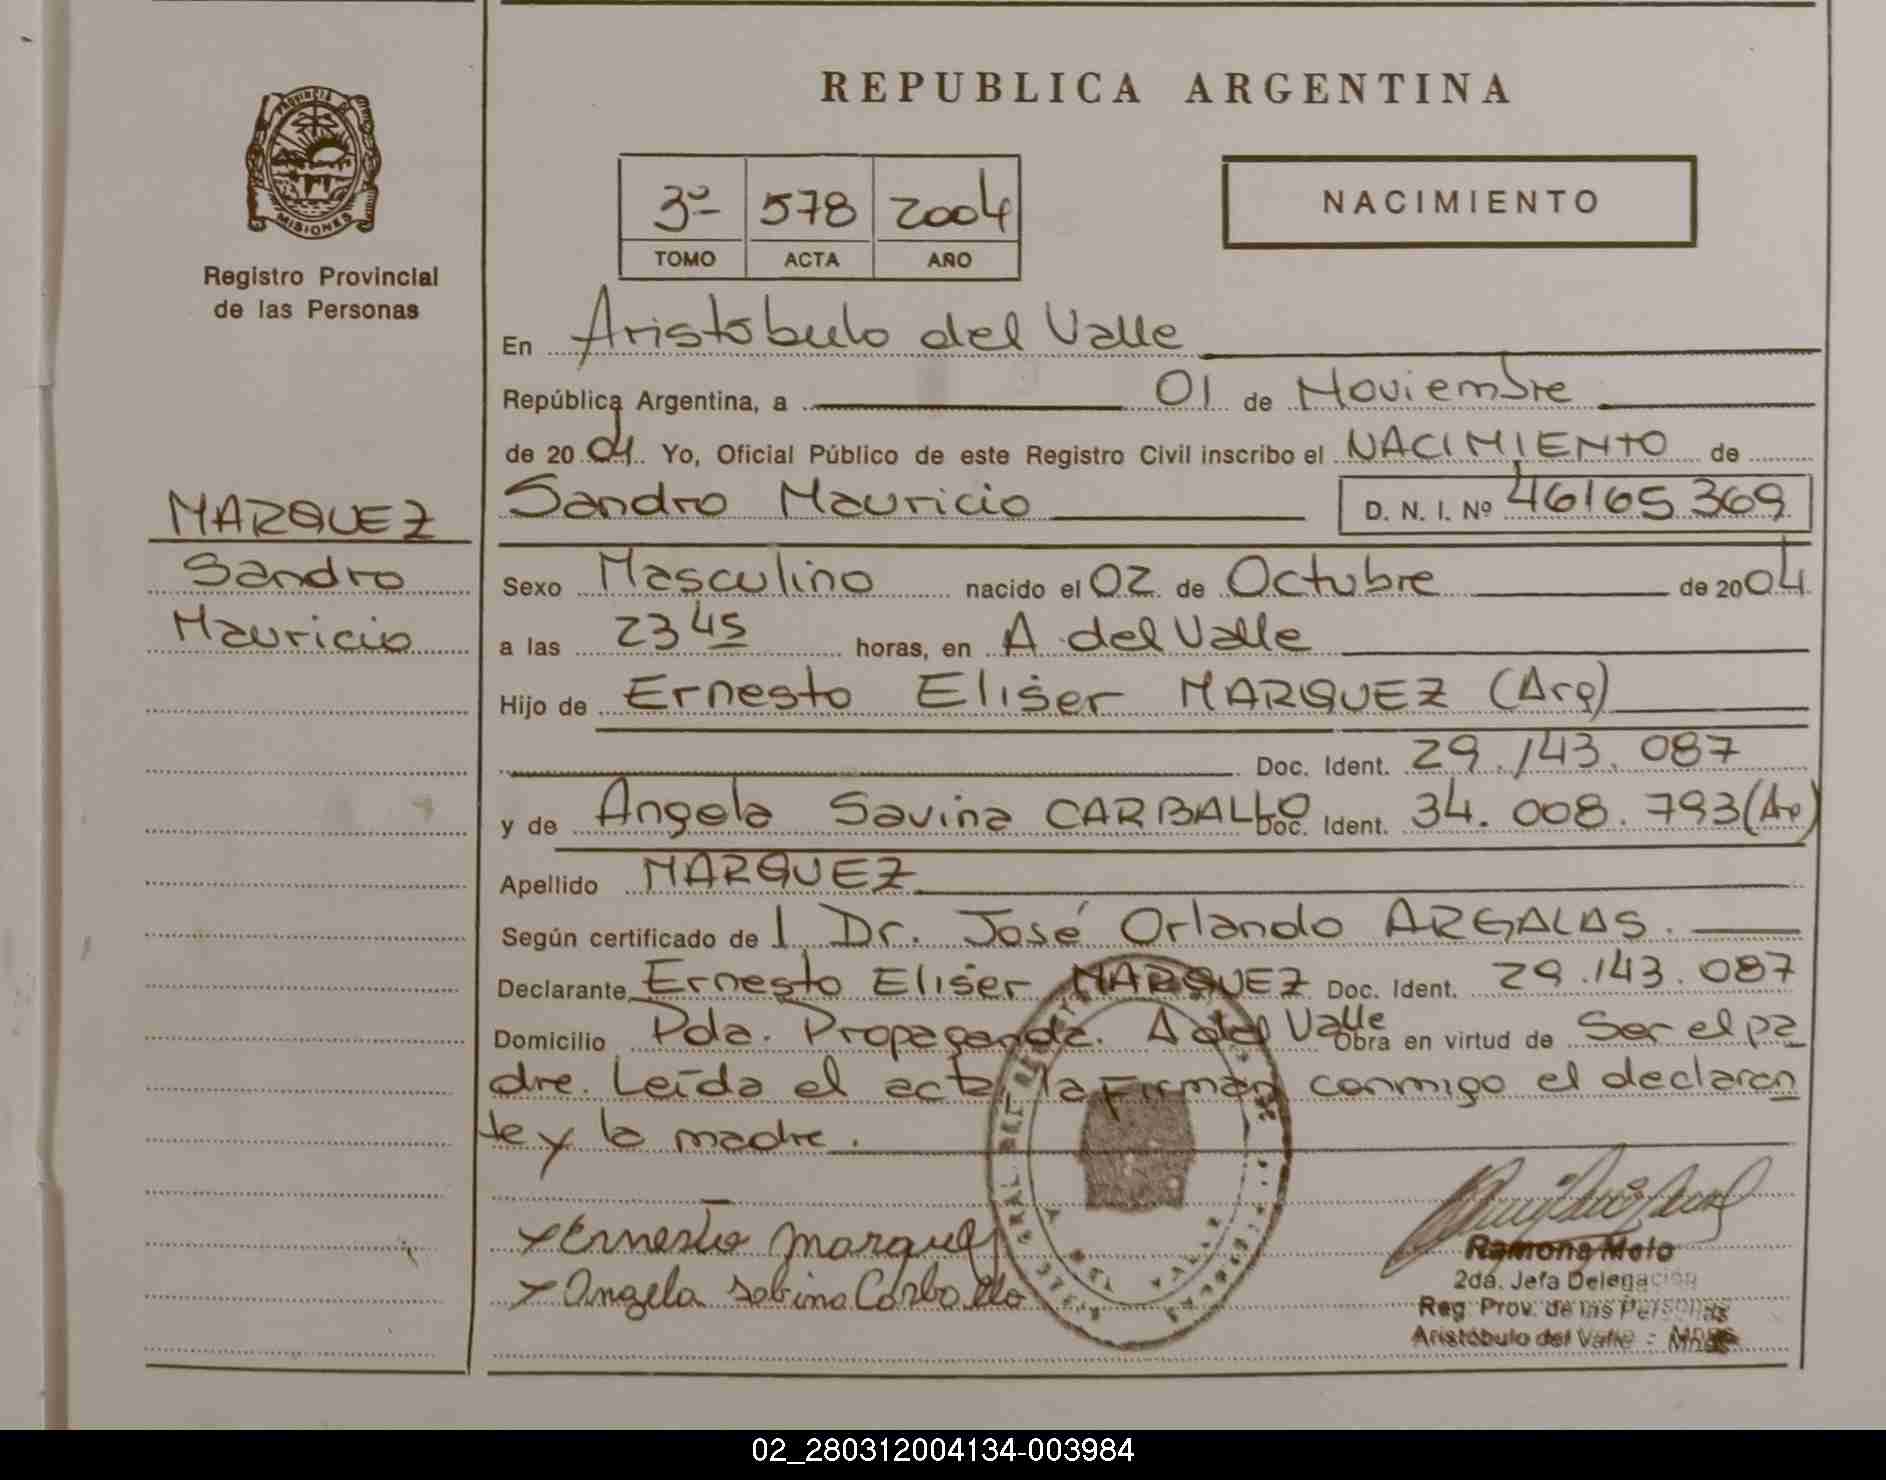 PROVINCIA DE
MISIONES
Registro Provincial
de las Personas
MARQUEZ
Sandro
Mauricio
REPUBLICA ARGENTINA
3º 578 2004
TOMO ACTA AÑO
NACIMIENTO
En Aristobulo del Valle
República Argentina, a 01 de Noviembre
de 20 04. Yo, Oficial Público de este Registro Civil inscribo el NACIMIENTO de
Sandro Mauricio D. N. I. Nº 46165369
Sexo Masculino nacido el 02 de Octubre de 20 04
a las 23 45 horas, en A. del Valle
Hijo de Ernesto Eliser MARQUEZ (Arg)
Doc. Ident. 29.143.087
y de Angela Savina CARBALLO Doc. Ident. 34.008.793 (Ar)
Apellido MARQUEZ
Según certificado de l Dr. José Orlando ARGALAS.
Declarante Ernesto Eliser MARQUEZ Doc. Ident. 29.143.087
Domicilio Pda. Propaganda. A del Valle Obra en virtud de Ser el pa
dre. Leída el acta la Firman conmigo el declaran
te y la madre.
x Ernesto Marquez
x Angela Sabina Carballo
Ramona Melo
2da. Jefa Delegación
Reg. Prov. de las Personas
Aristóbulo del Valle - Mnes
02_280312004134-003984